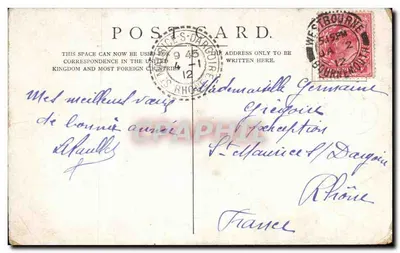 POST CARD.
THIS SPACE CAN NOW BE USED FOR
CORRESPONDENCE IN THE UNITED
KINGDOM AND MOST FOREIGN
ADDRESS ONLY TO BE
WRITTEN HERE.
9 45
4 - 1
12
RHÔNE
WESTBOURNE
5.15 PM
JA 2
12
BOURNEMOUTH
Mes meilleurs vœux
de bonne année
Mademoiselle Germaine
Grégoire
St Maurice S/ Dargoire
Rhône
France